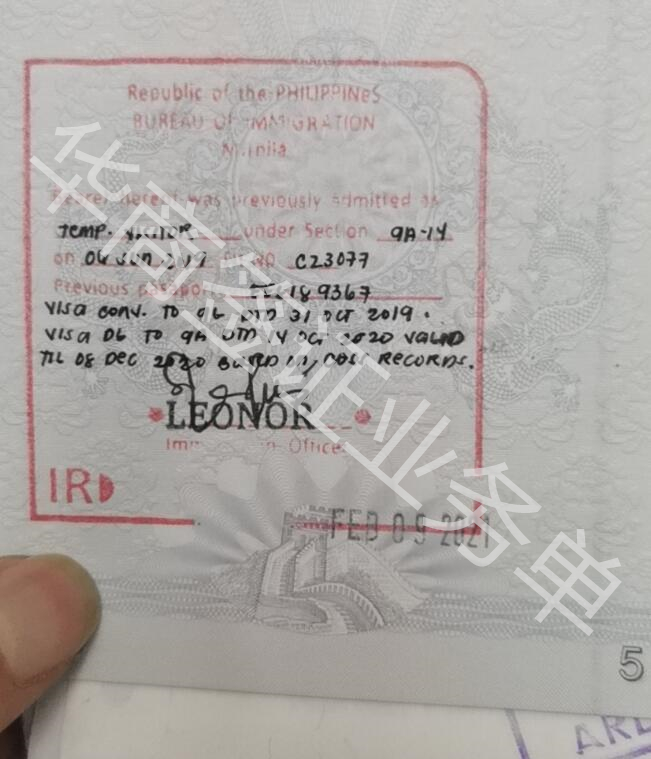 Republic of the PHILIPPINES
BUREAU OF IMMIGRATION
Manila
Bearer hereof was previously admitted as
TEMP. VISITOR under Section 9A-14
on 06 JUN C23077
Previous passport 189367
VISA CONV. TO 9G DTD 31 OCT 2019.
VISA DG TO 9A DTD 14 OCT 2020 VALID
TIL 08 DEC 2020 BASED RECORDS.
LEONOR
Immigration Officer
IRD
FEB 09 2021
华商签证业务单
5
ARE